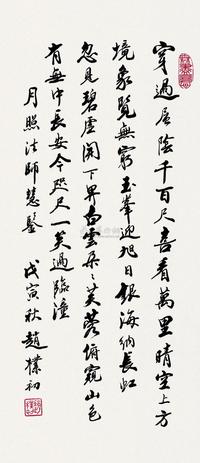 穿過層陰千百尺喜看萬里晴空上方
境象覽無窮玉峯迎旭日銀海納長虹
忽見碧虛開下界白雲朵々芙蓉俯窺山色
有無中長安今咫尺一笑過臨潼
月照法師慧鑒 戊寅秋趙樸初